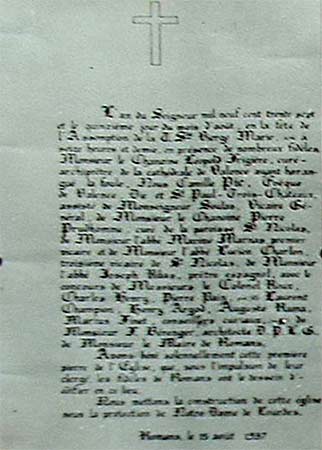 L'an du Seigneur mil neuf cent trente sept
et le quinzième jour du mois d'août, en la fête
de l'Assomption de la T. Ste Vierge Marie, à
heures et demie, en présence de nombreux fidèles,
Monsieur le Chanoine Léopold Frigière, curé-
archiprêtre de la cathédrale de Valence ayant haran-
gué la foule, Nous Camille Pic, Évêque
de Valence, Die et St Paul-Trois-Châteaux,
assisté de Monsieur Soulas Vicaire Gé-
néral, de Monsieur le Chanoine Pierre
Prudhomme, curé de la paroisse St Nicolas,
de Monsieur l'abbé Marius
et de Monsieur l'abbé Lucien Charlon,
de St Nicolas, de Monsieur
l'abbé Joseph Ribas, prêtre espagnol, avec le
concours de Messieurs le Colonel Roux,
Charles Henry, Pierre et Laurent
Champion, Henry Argod, Auguste
Marius conseillers de
Monsieur F. architecte D.P.L.G.
de Monsieur le Maire de Romans,
Avons béni solennellement cette première
pierre de l'Église, que, sous l'impulsion de leur
clergé, les fidèles de Romans ont le dessein d'é-
difier en ce lieu.
Nous mettons la construction de cette église
sous la protection de Notre-Dame de Lourdes.
Romans, le 15 août 1937